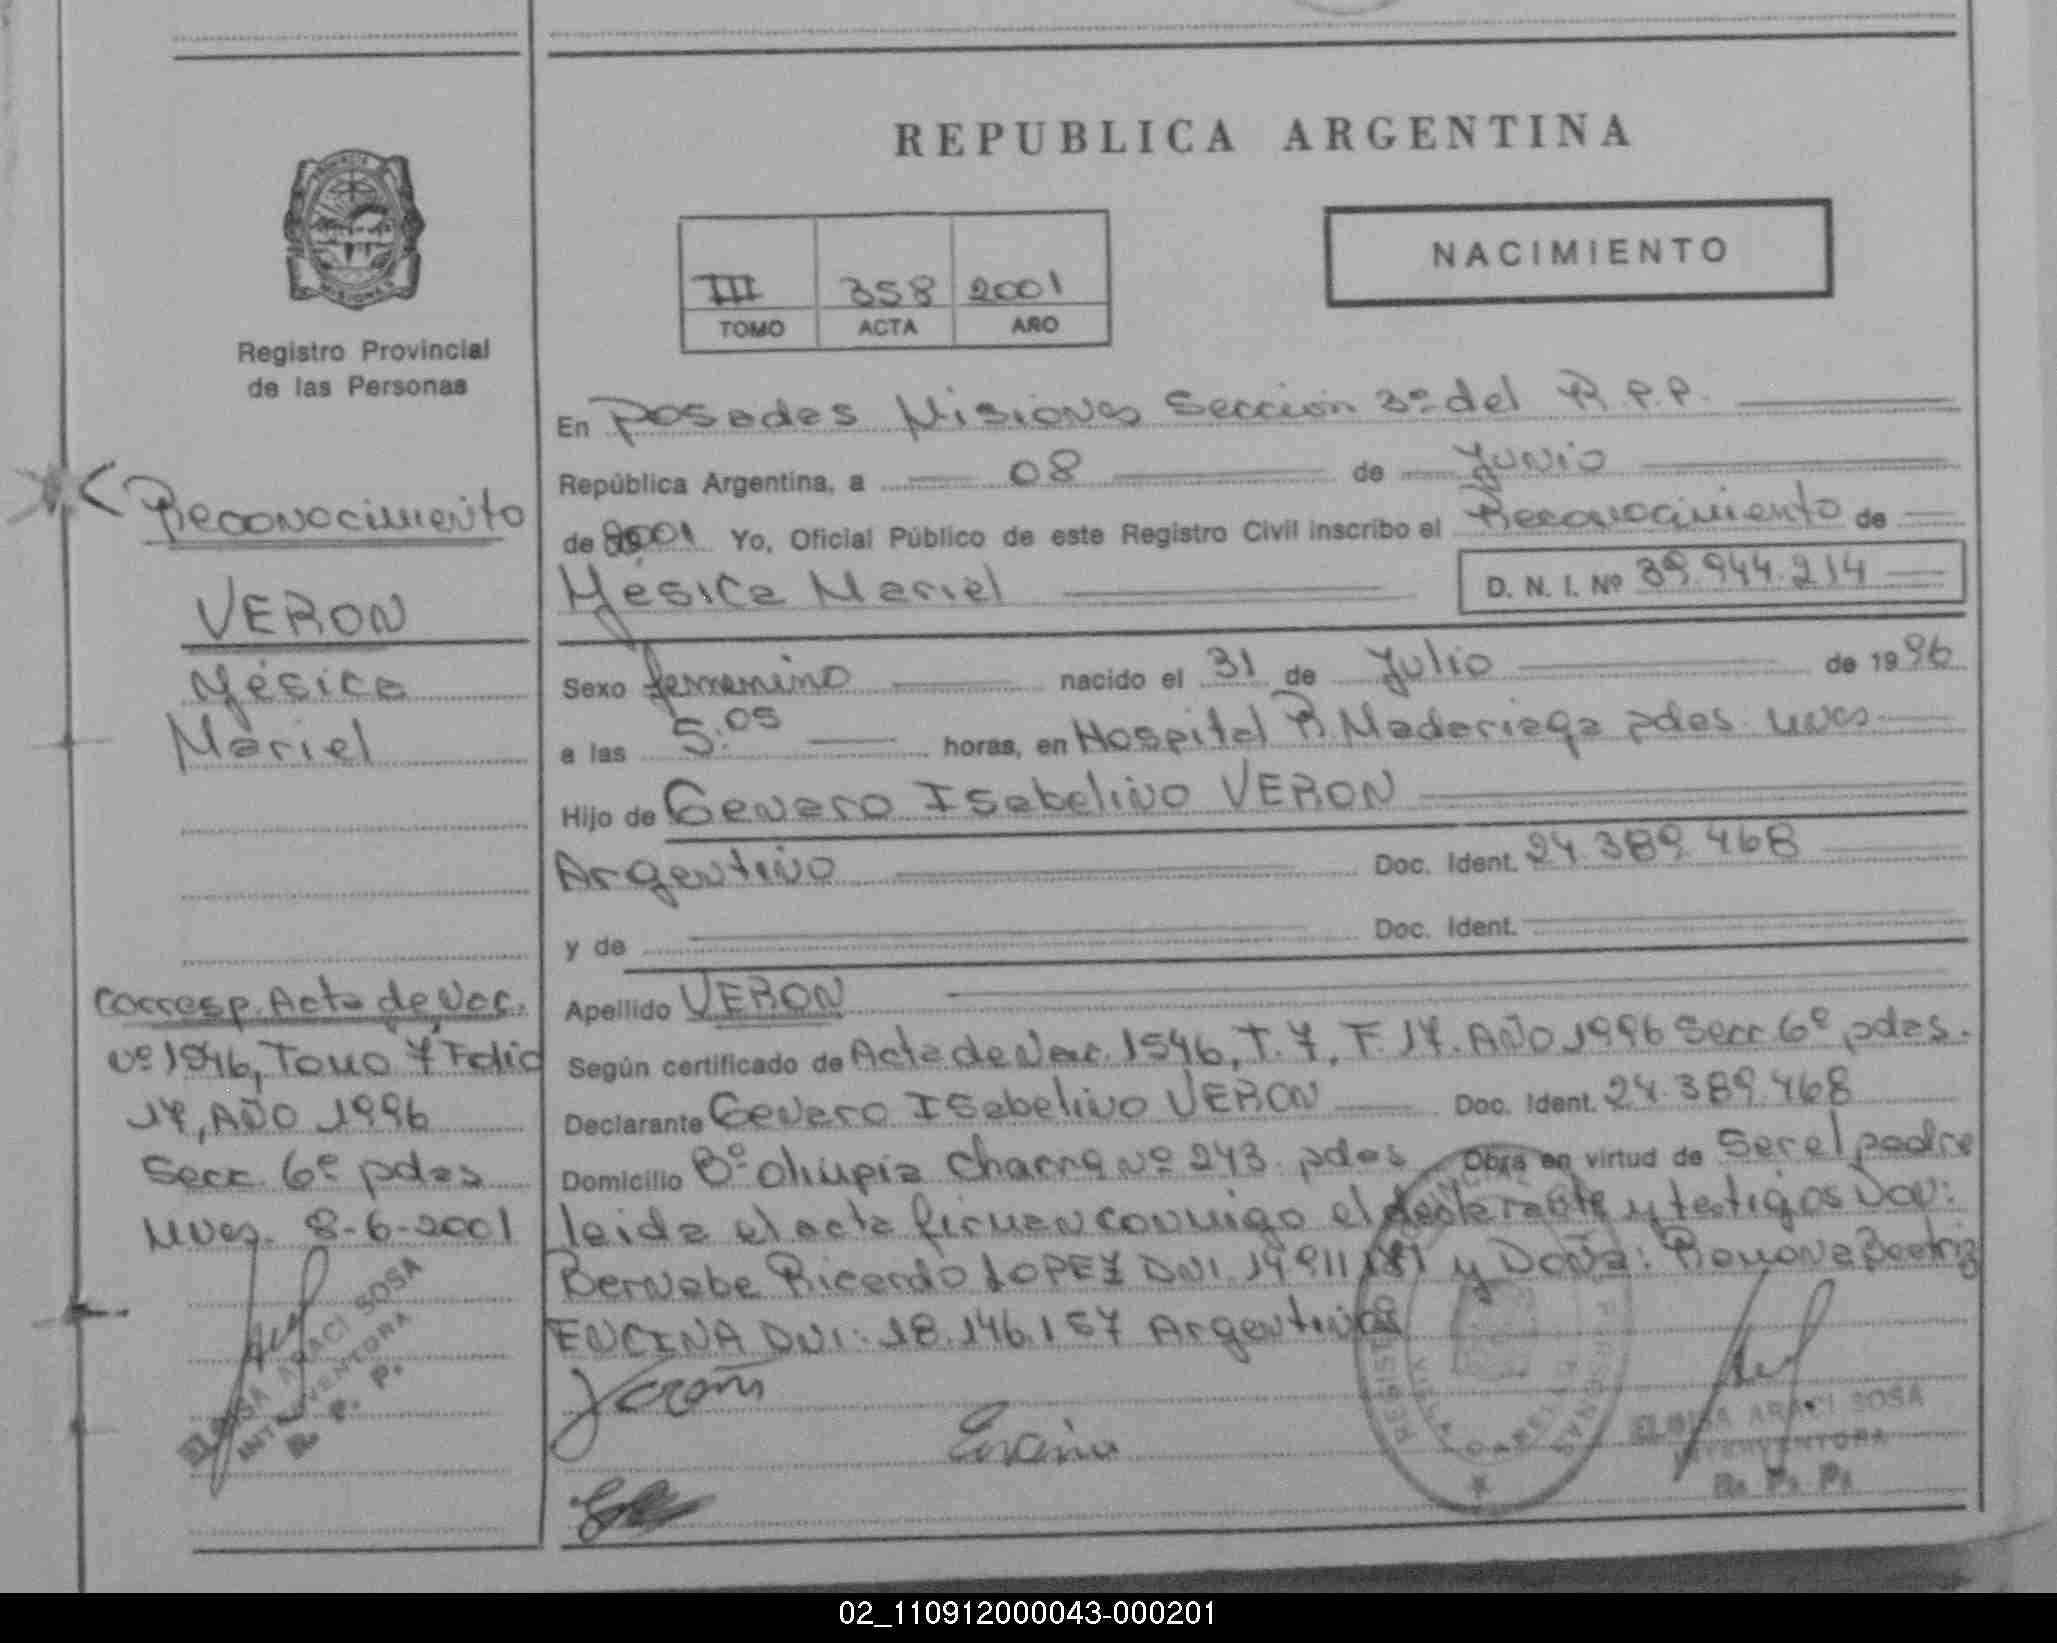 REPUBLICA ARGENTINA
NACIMIENTO
III 358 2001
TOMO ACTA AÑO
MISIONES
Registro Provincial
de las Personas
En Posadas Misiones Sección 3º del R.P.P.
República Argentina, a 08 de Junio
de 2001 Yo, Oficial Público de este Registro Civil inscribo el Reconocimiento de
Yésica Mariel D. N. I. Nº 39.944.214
Sexo femenino nacido el 31 de Julio de 1996
a las 5:05 horas, en Hospital R. Madariaga pdas. Mnes
Hijo de Genaro Isabelino VERON
Argentino Doc. Ident. 24.389.468
y de Doc. Ident.
Apellido VERON
Según certificado de Acta de Nac. 1546, T. 7, F. 17. AÑO 1996 Secc. 6º pdas.
Declarante Genaro Isabelino VERON Doc. Ident. 24.389.468
Domicilio Bº Olimpia Chacra Nº 243 pdas Obra en virtud de Ser el padre
leida el acta firman conmigo el declarante y testigos Don:
Bernabe Ricardo LOPEZ DNI. y Doña: Ramona Beatriz
ENCINA DNI: 18.146.157 Argentinos
Encina
ELOISA ARACI SOSA
INTERVENTORA
R. P. P.
Reconocimiento
VERON
Yésica
Mariel
Corresp. Acta de Nac.
Nº 1546, Tomo 7 Folio
17, AÑO 1996
Secc 6º pdas
Mnes. 8-6-2001
ELOISA ARACI SOSA
INTERVENTORA
R. P. P.
02_110912000043-000201